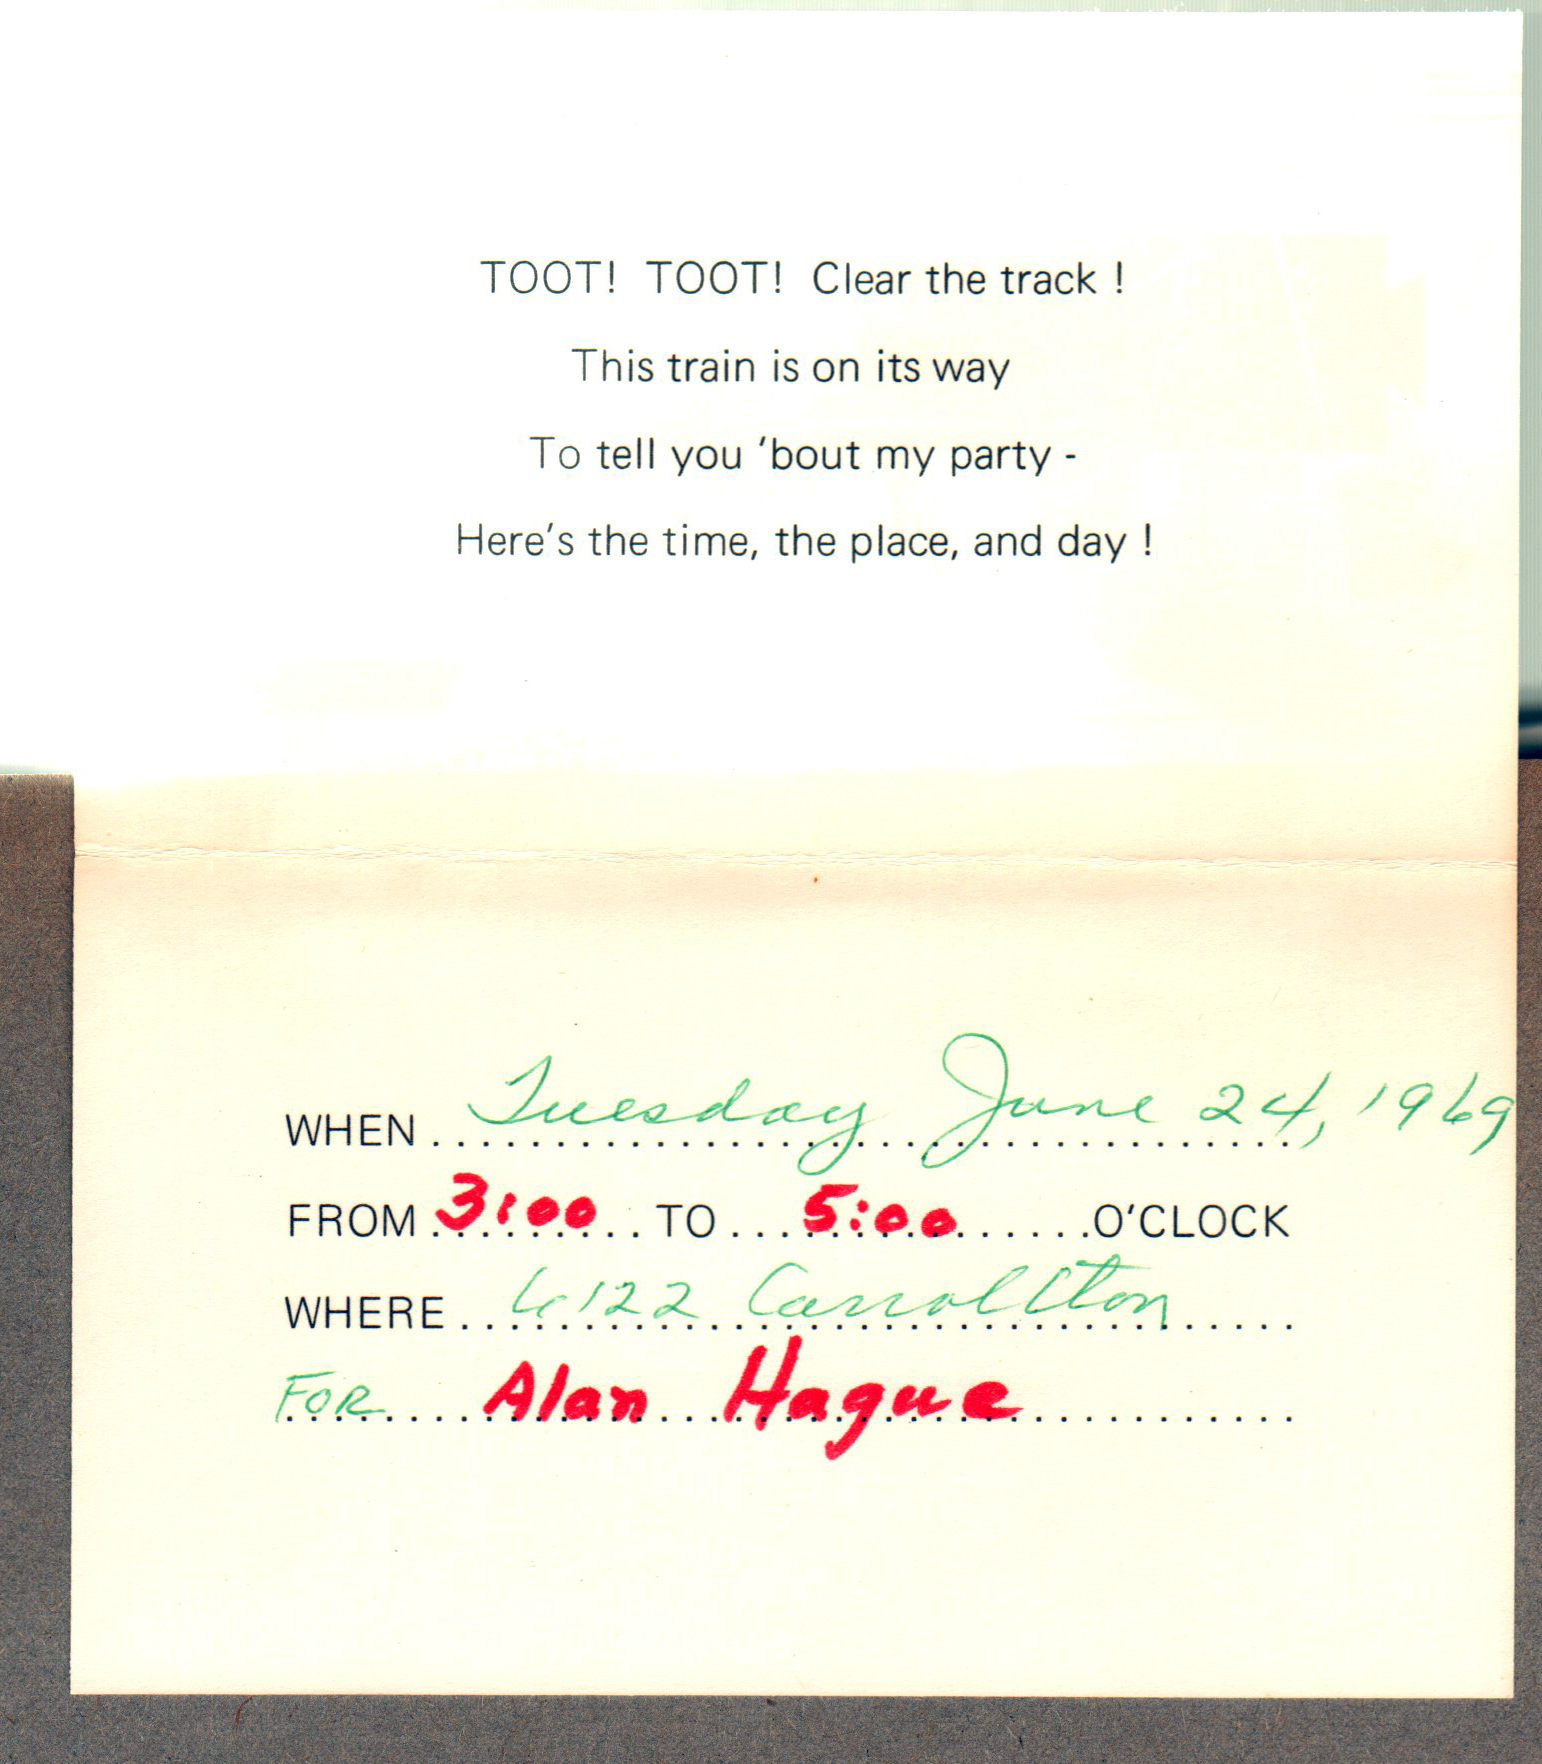 TOOT! TOOT! Clear the track !
This train is on its way
To tell you 'bout my party -
Here's the time, the place, and day !
WHEN Tuesday June 24, 1969
FROM 3:00 TO 5:00 O'CLOCK
WHERE 6122 Carrollton
FOR Alan Hague